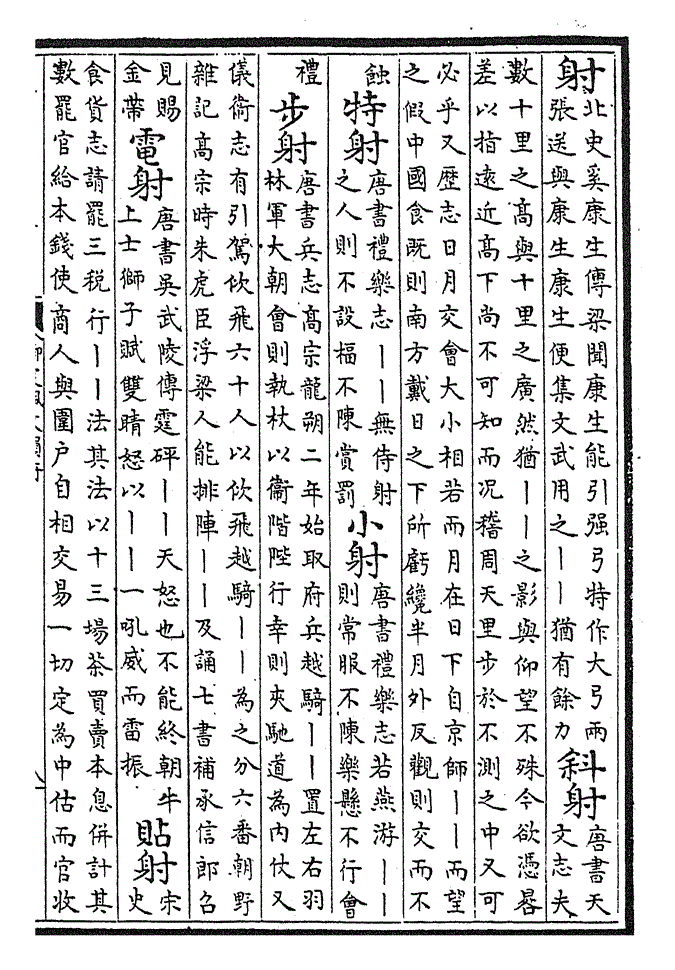 射
北史奚康生傳梁聞康生能引强弓特作大弓兩
張送與康生康生便集文武用之丨丨猶有餘力
斜射
唐書天
文志夫
數十里之高與十里之廣然猶丨丨之影與仰望不殊今欲憑晷
差以指遠近高下尚不可知而况稽周天里步於不測之中又可
必乎又歴志日月交會大小相若而月在日下自京師丨丨而望
之假中國食既則南方戴日之下所虧纔半月外反觀則交而不
蝕
特射
唐書禮樂志丨丨無侍射
之人則不設楅不陳賞罰
小射
唐書禮樂志若燕游丨丨
則常服不陳樂懸不行會
禮
步射
唐書兵志高宗龍朔二年始取府兵越騎丨丨置左右羽
林軍大朝會則執杖以衞階陛行幸則夾馳道為内仗又
儀衞志有引駕佽飛六十人以佽飛越騎丨丨為之分六番朝野
雜記高宗時朱虎臣浮梁人能排陣丨丨及誦七書補承信郎召
見賜
金帶
電射
唐書吳武陵傳霆砰丨丨天怒也不能終朝牛
上士獅子賦雙睛怒以丨丨一吼威而雷振
貼射
宋
史
食貨志請罷三税行丨丨法其法以十三場茶買賣本息併計其
數罷官給本錢使商人與圍户自相交易一切定為中估而官收